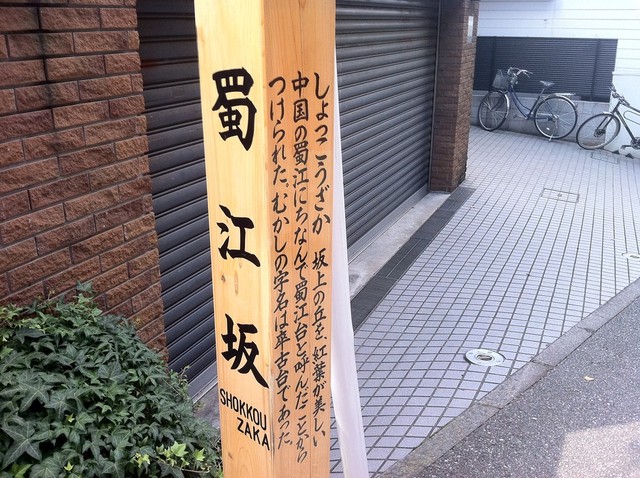 蜀江坂
SHOKKOU
ZAKA
しょっこうざか 坂上の丘を、紅葉が美しい
中国の蜀江にちなんで蜀江台と呼んだことから
つけられた。むかしの字名は卒古台であった。